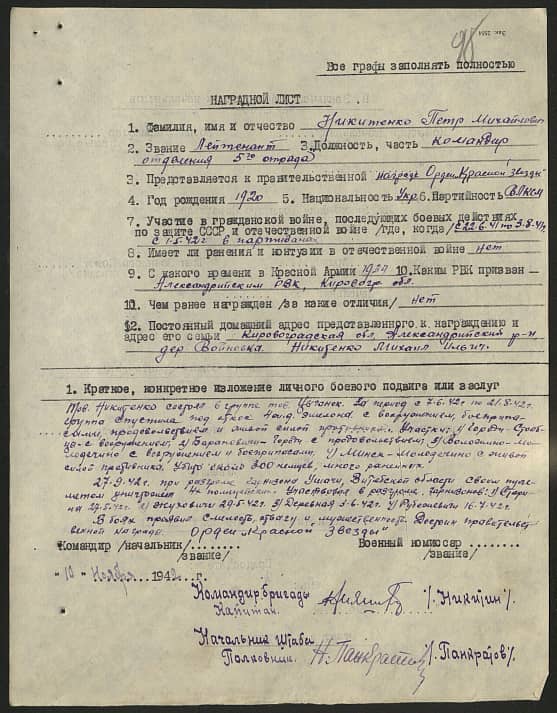 98
Все графы заполнять полностью
НАГРАДНОЙ ЛИСТ
1. Фамилия, имя и отчество Никитенко Петр Михайлович
2. Звание Лейтенант 3. Должность, часть командир
отделения 5го отряда
3. Представляется к правительственной награде Орден Красной Звезды
4. Год рождения 1920 5. Национальность Укр 6. Партийность ВЛКСМ
7. Участие в гражданской войне, последующих боевых действиях
по защите СССР и отечественной войне /где, когда/ с 22.6.41 по 3.8.41г
с 1.5.42г в партизанах
8. Имеет ли ранения и контузии в отечественной войне нет
9. С какого времени в Красной Армии 1939 10. Каким РВК призван
Александрийским РВК, Кировогр. обл.
11. Чем ранее награжден /за какие отличия/ нет
12. Постоянный домашний адрес представленного к награждению и
адрес его семьи Кировоградская обл. Александрийский р-н
дер Войновка. Никитенко Михаил Ильич.
1. Краткое, конкретное изложение личного боевого подвига или заслуг
Тов. Никитенко состоя в группе тов. за период с 7.6.42г по 21.8.42г.
группа спустила под откос 4 эшелона с вооружением, боеприпа-
сами, продовольствием и живой силой противника. Участки: 1/ Городи-
с вооружением, 2/ Барановичи- с продовольствием, 3/ Воложино-Мо-
лодечино с вооружением и боеприпасами, 4/ Минск-Молодечино с живой
силой противника. Убито около 300 немцев, много раненых.
27.9.42г. при разгроме гарнизона Ушачи, Витебской области своим пуле-
метом уничтожил 4х полицейских. Участвовал в разгроме гарнизонов: 1/
на 27.5.42г. 2/ Жуховичи 29.5.42г. 3/ Деревная 3.6.42г. 4/ Рубежевичи 16.7.42г.
В боях проявил смелость, отвагу и мужественность. Достоин правительст-
венной награды Орден „Красной Звезды"
Командир /начальник/........ Военный комиссар ........
/звание/ /звание/
"10" Ноября 1942 г.
Командир бригады
Капитан /Никитин/.
Начальник Штаба
Полковник. Н. Панкратов /Панкратов/.